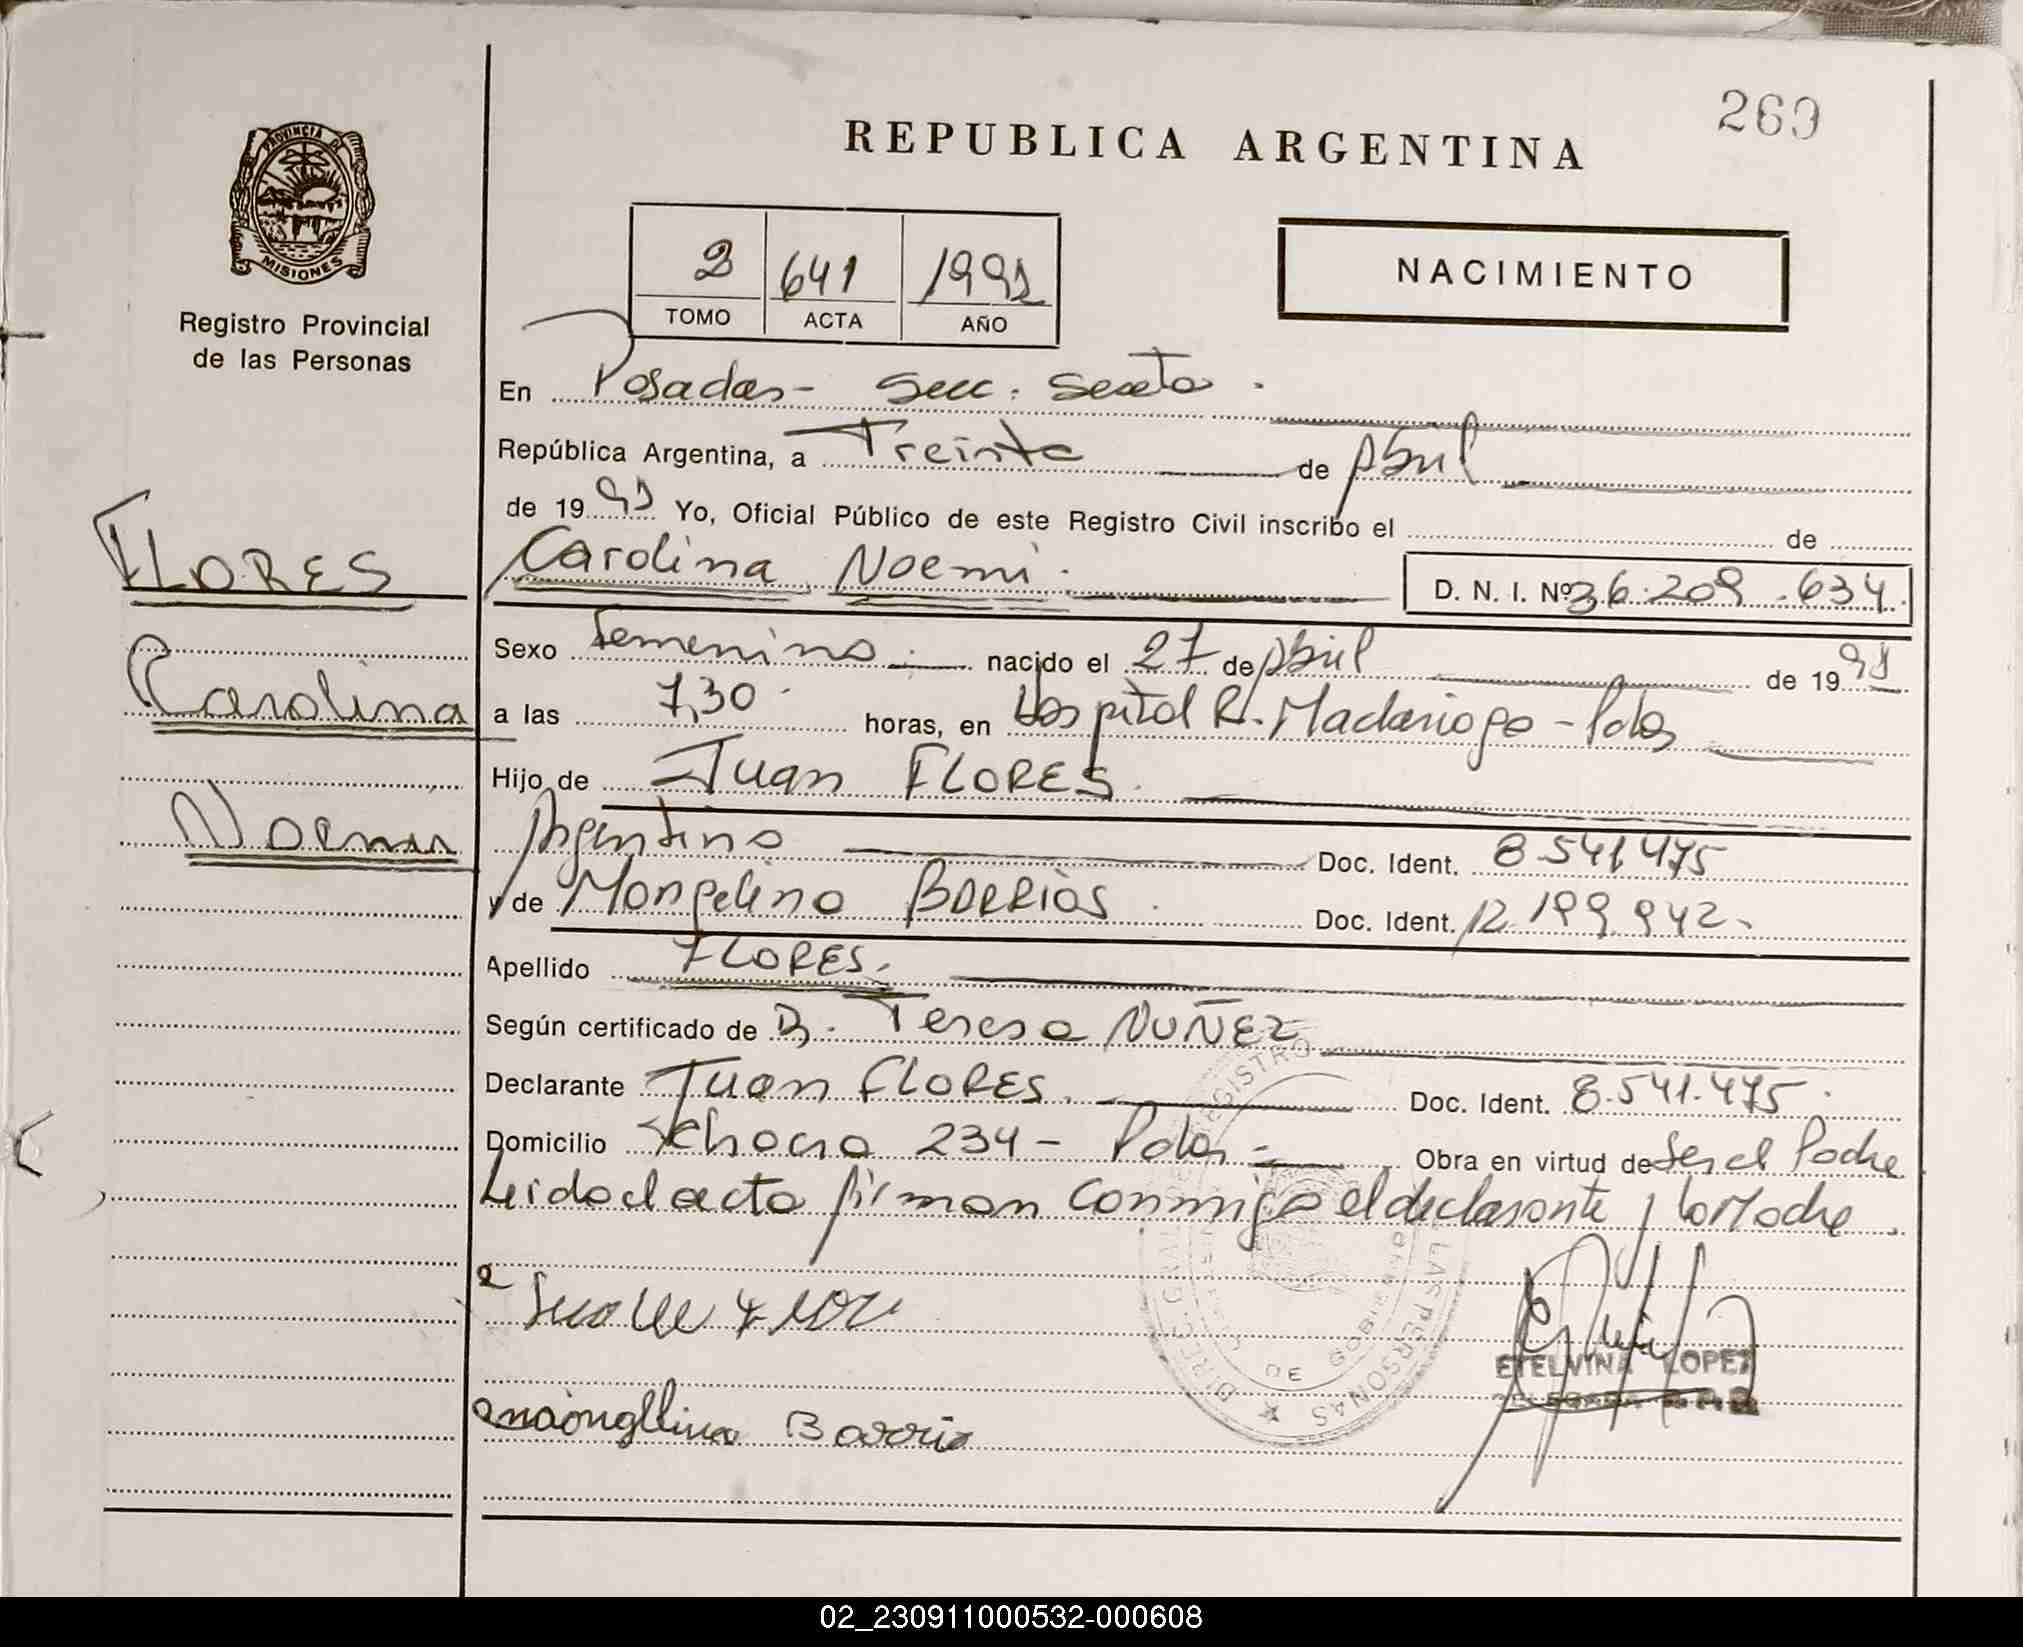 269
REPUBLICA ARGENTINA
PROVINCIA DE
MISIONES
Registro Provincial
de las Personas
2 641 1991
TOMO ACTA AÑO
NACIMIENTO
En Posadas - Secc. Sexta.
República Argentina, a Treinta de Abril
de 1991 Yo, Oficial Público de este Registro Civil inscribo el de
FLORES
Carolina Noemi.
D. N. I. Nº 36.209.634.
Sexo Femenino. nacido el 27 de Abril de 1991
Carolina
a las 7,30 horas, en Hospital R. Madariaga - Pdas
Hijo de Juan FLORES.
Noemi
Argentino Doc. Ident. 8.541.475
y de Mongelina BARRIOS. Doc. Ident. 12.199.942.
Apellido FLORES.
Según certificado de D. Teresa NUÑEZ
Declarante Juan FLORES. Doc. Ident. 8.541.475.
Domicilio 234 - Pdas - Obra en virtud de Ser el Padre
Leido el acta firman conmigo el declarante y la Madre.
Barrio
ETELVINA LOPEZ
02_230911000532-000608